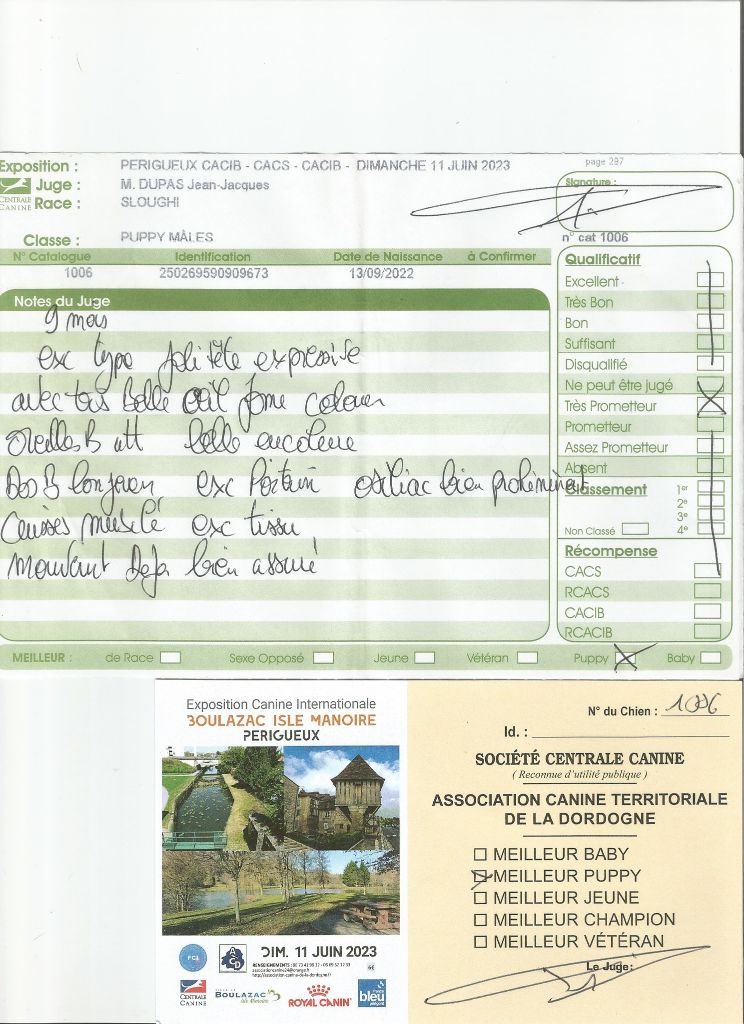 Exposition : PERIGUEUX CACIB - CACS - CACIB - DIMANCHE 11 JUIN 2023 page 297
Juge : M. DUPAS Jean-Jacques Signature :
CENTRALE CANINE Race : SLOUGHI
Classe : PUPPY MÂLES n° cat 1006
N° Catalogue Identification Date de Naissance à Confirmer
1006 250269590909673 13/09/2022
Qualificatif
Excellent
Très Bon
Bon
Suffisant
Disqualifié
Ne peut être jugé
Très Prometteur
Prometteur
Assez Prometteur
Absent
Classement 1er
2e
3e
Non Classé 4e
Récompense
CACS
RCACS
CACIB
RCACIB
Notes du Juge
9 mois
exc type joli tête expressive
avec très belle œil
oreilles B att belle encolure
Dos B longueur exc bien
Cuisses musclé exc tissu
mouvement Deja bien assuré
MEILLEUR : de Race Sexe Opposé Jeune Vétéran Puppy Baby
Exposition Canine Internationale
BOULAZAC ISLE MANOIRE
PERIGUEUX
FCI
ACD
DIM. 11 JUIN 2023
6€
CENTRALE CANINE
BOULAZAC
Isle Manoire
ROYAL CANIN
france bleu périgord
N° du Chien : 1006
Id. :
SOCIÉTÉ CENTRALE CANINE
( Reconnue d'utilité publique )
ASSOCIATION CANINE TERRITORIALE
DE LA DORDOGNE
MEILLEUR BABY
MEILLEUR PUPPY
MEILLEUR JEUNE
MEILLEUR CHAMPION
MEILLEUR VÉTÉRAN
Le Juge: